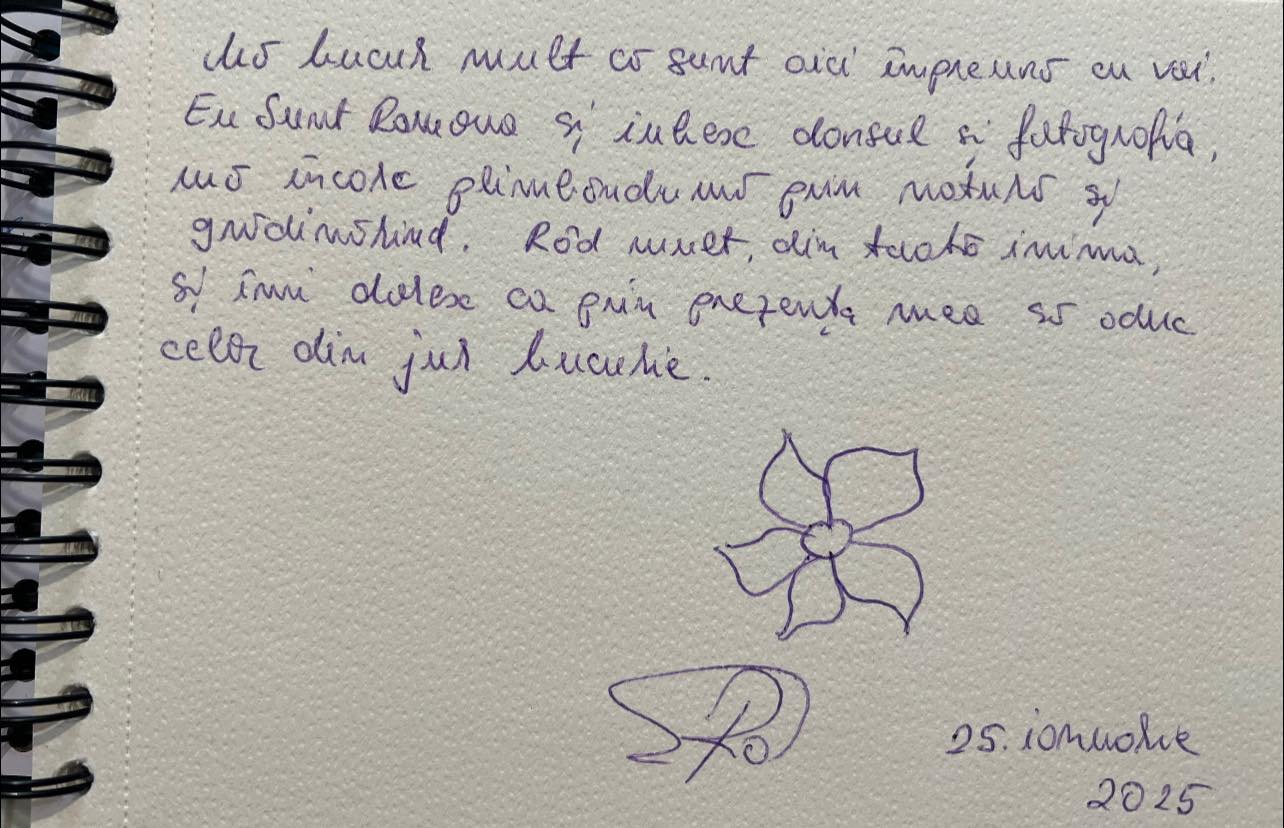 Mă bucur mult că sunt aici împreună cu voi.
Eu Sunt Ramona și iubesc dansul și fotografia,
mă încarc plimbându mă prin natură și
grădinărind. Râd mult, din toată inima,
și îmi doresc ca prin prezența mea să aduc
celor din jur bucurie.
Ro
25. ianuarie
2025